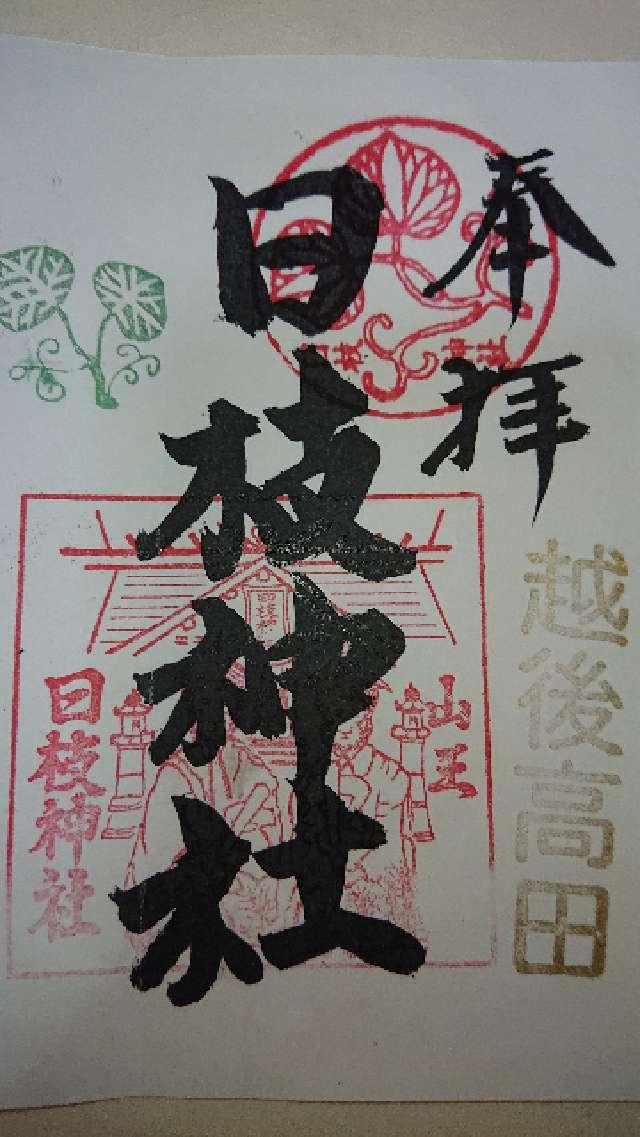 奉拝
日枝神社
越後高田
山王
日枝神社
日枝神社